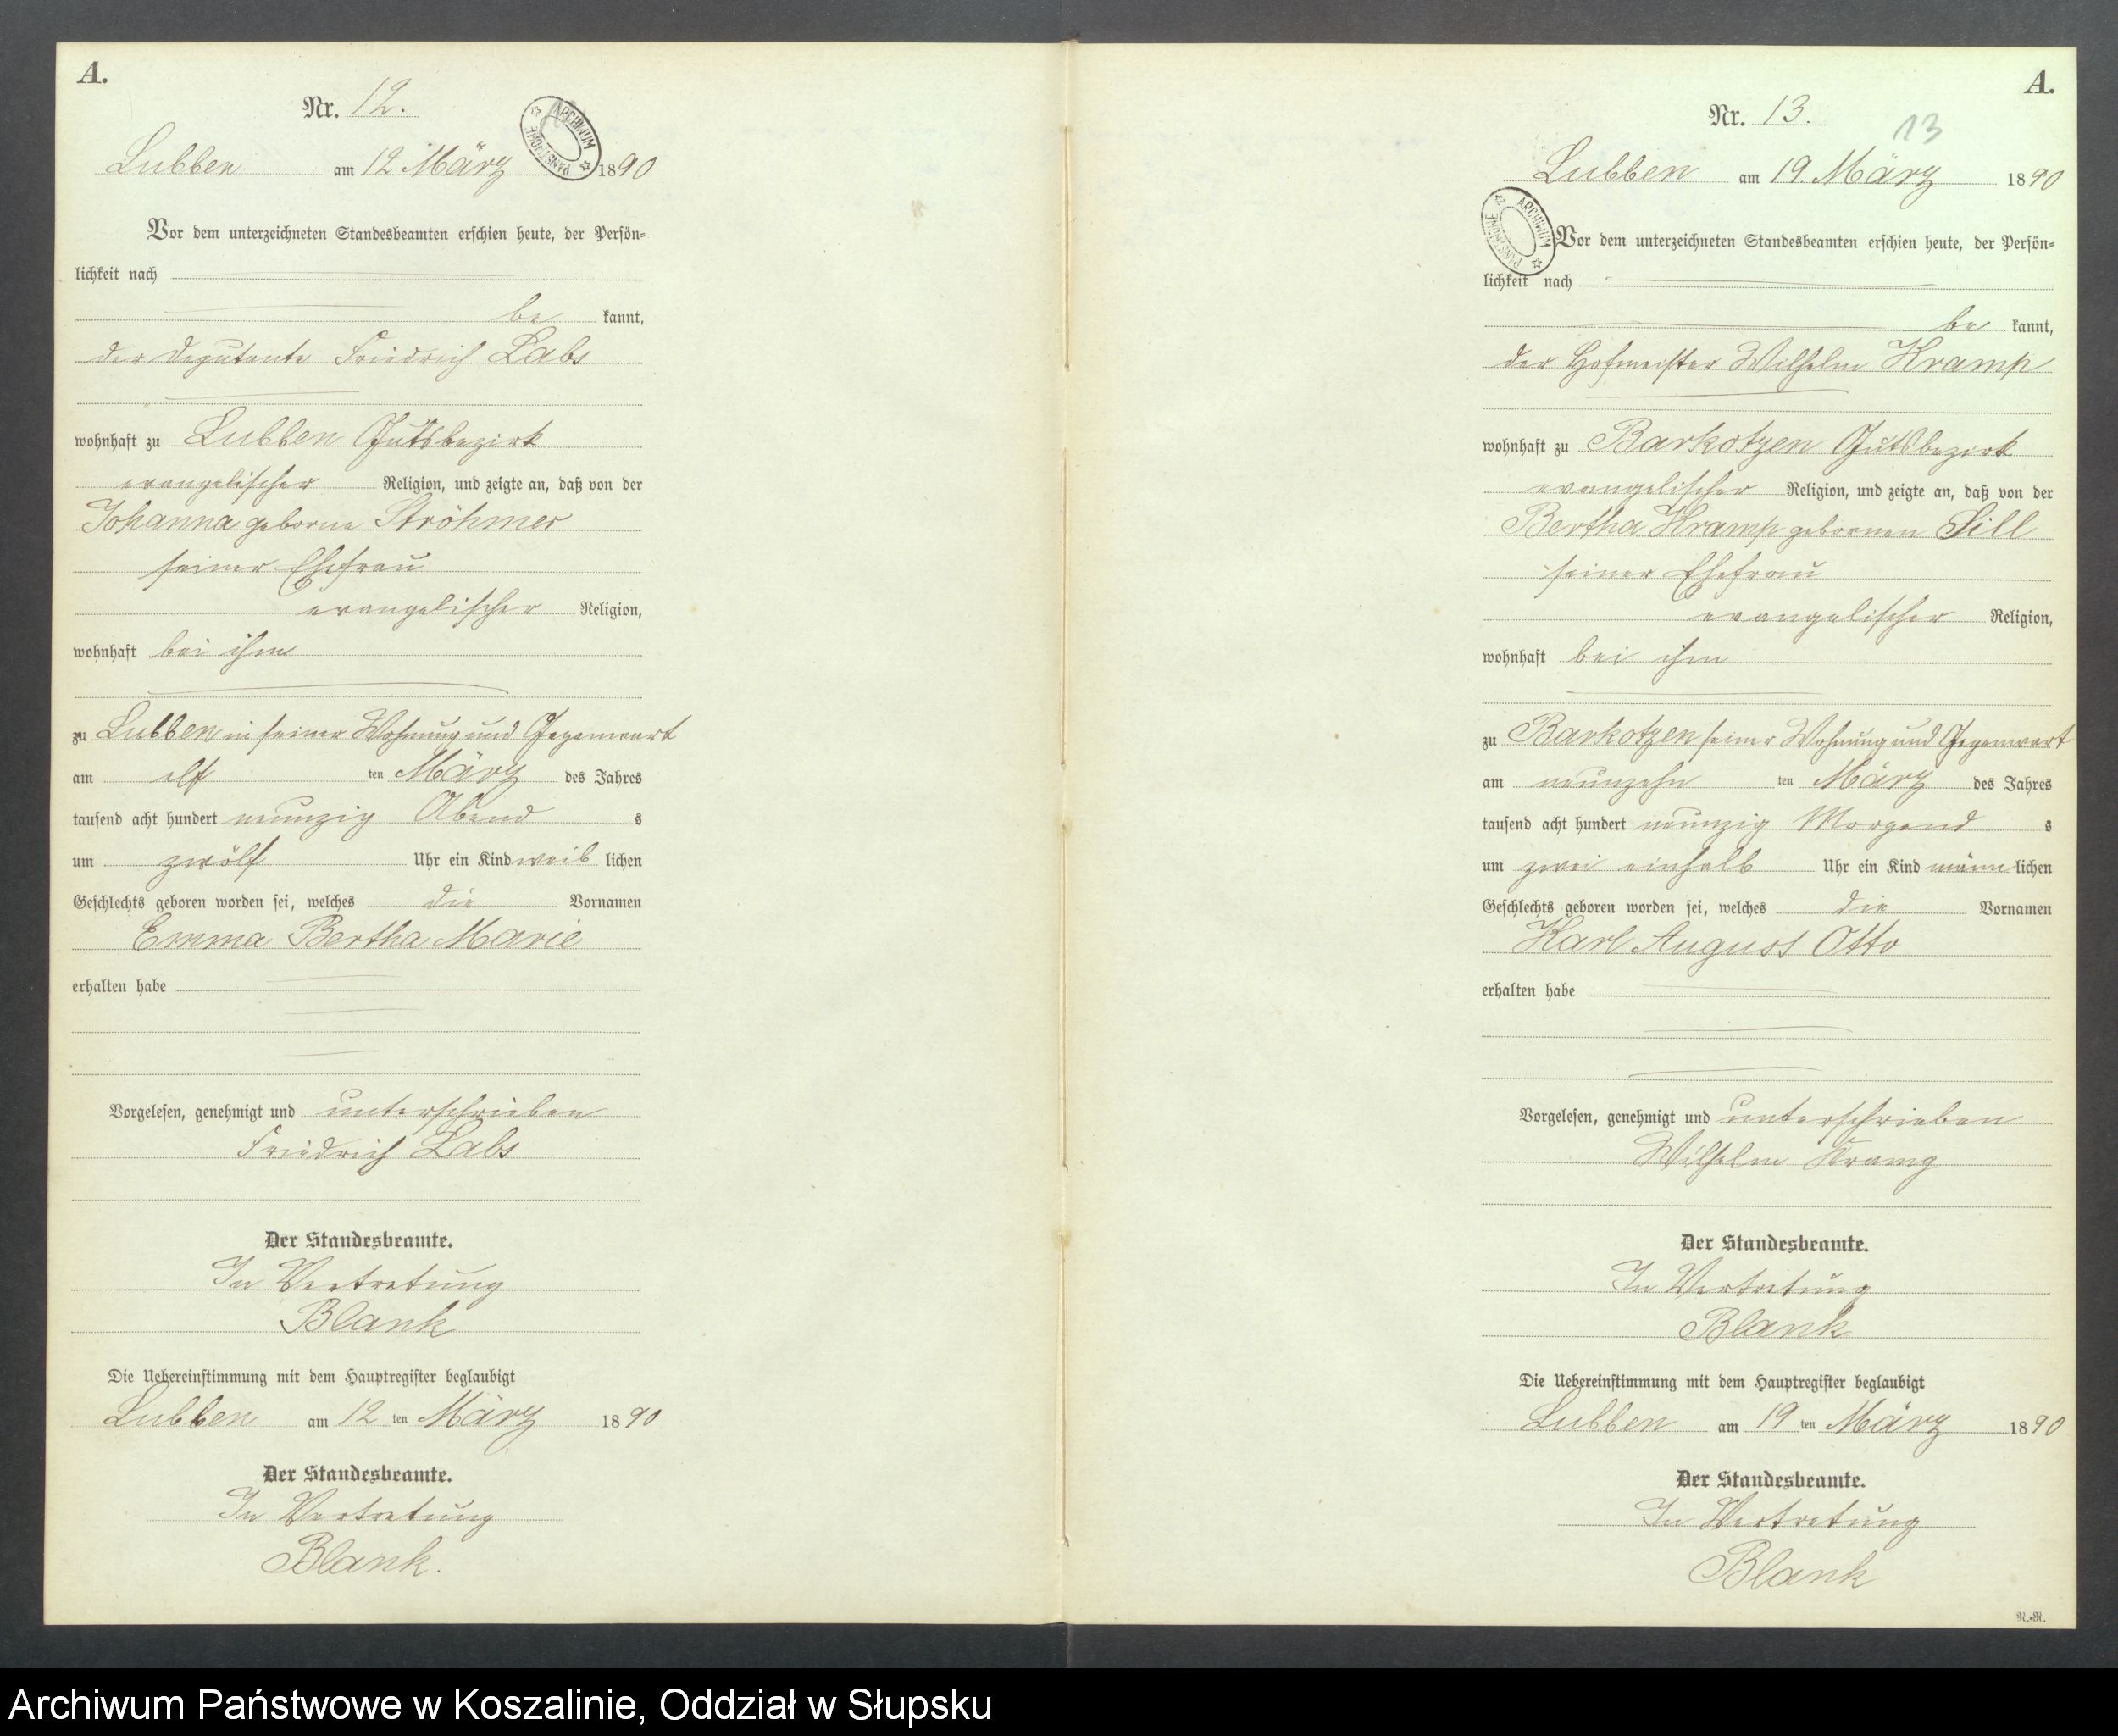 A.
Nr. 12.
ARCHIWUM PAŃSTWOWE
Lubben am 12 März 1890
Vor dem unterzeichneten Standesbeamten erschien heute, der Persön-
lichkeit nach
be kannt,
der Deputante Friedrich Labs
wohnhaft zu Lubben Gutsbezirk
evangelischer Religion, und zeigte an, daß von der
Johanna geborne Ströhmer
seiner Ehefrau
evangelischer Religion,
wohnhaft bei ihm
zu Lubben in seiner Wohnung und Gegenwart
am elf ten März des Jahres
tausend acht hundert neunzig Abend s
um zwölf Uhr ein Kind weib lichen
Geschlechts geboren worden sei, welches die Vornamen
Emma Bertha Marie
erhalten habe
Vorgelesen, genehmigt und unterschrieben
Friedrich Labs
Der Standesbeamte.
In Vertretung
Blank
Die Uebereinstimmung mit dem Hauptregister beglaubigt
Lubben am 12 ten März 1890
Der Standesbeamte.
In Vertretung
Blank.
A.
Nr. 13.
13
Lubben am 19. März 1890
ARCHIWUM PAŃSTWOWE
Vor dem unterzeichneten Standesbeamten erschien heute, der Persön-
lichkeit nach
be kannt,
der Hofmeister Wilhelm Kramp
wohnhaft zu Barkotzen Gutsbezirk
evangelischer Religion, und zeigte an, daß von der
Bertha Kramp gebornen Sill
seiner Ehefrau
evangelischer Religion,
wohnhaft bei ihm
zu Barkotzen seiner Wohnung und Gegenwart
am neunzehn ten März des Jahres
tausend acht hundert neunzig Morgend s
um zwei einhalb Uhr ein Kind männ lichen
Geschlechts geboren worden sei, welches die Vornamen
Karl August Otto
erhalten habe
Vorgelesen, genehmigt und unterschrieben
Wilhelm Kramp
Der Standesbeamte.
In Vertretung
Blank
Die Uebereinstimmung mit dem Hauptregister beglaubigt
Lubben am 19 ten März 1890
Der Standesbeamte.
In Vertretung
Blank
R.-R.
Archiwum Państwowe w Koszalinie, Oddział w Słupsku